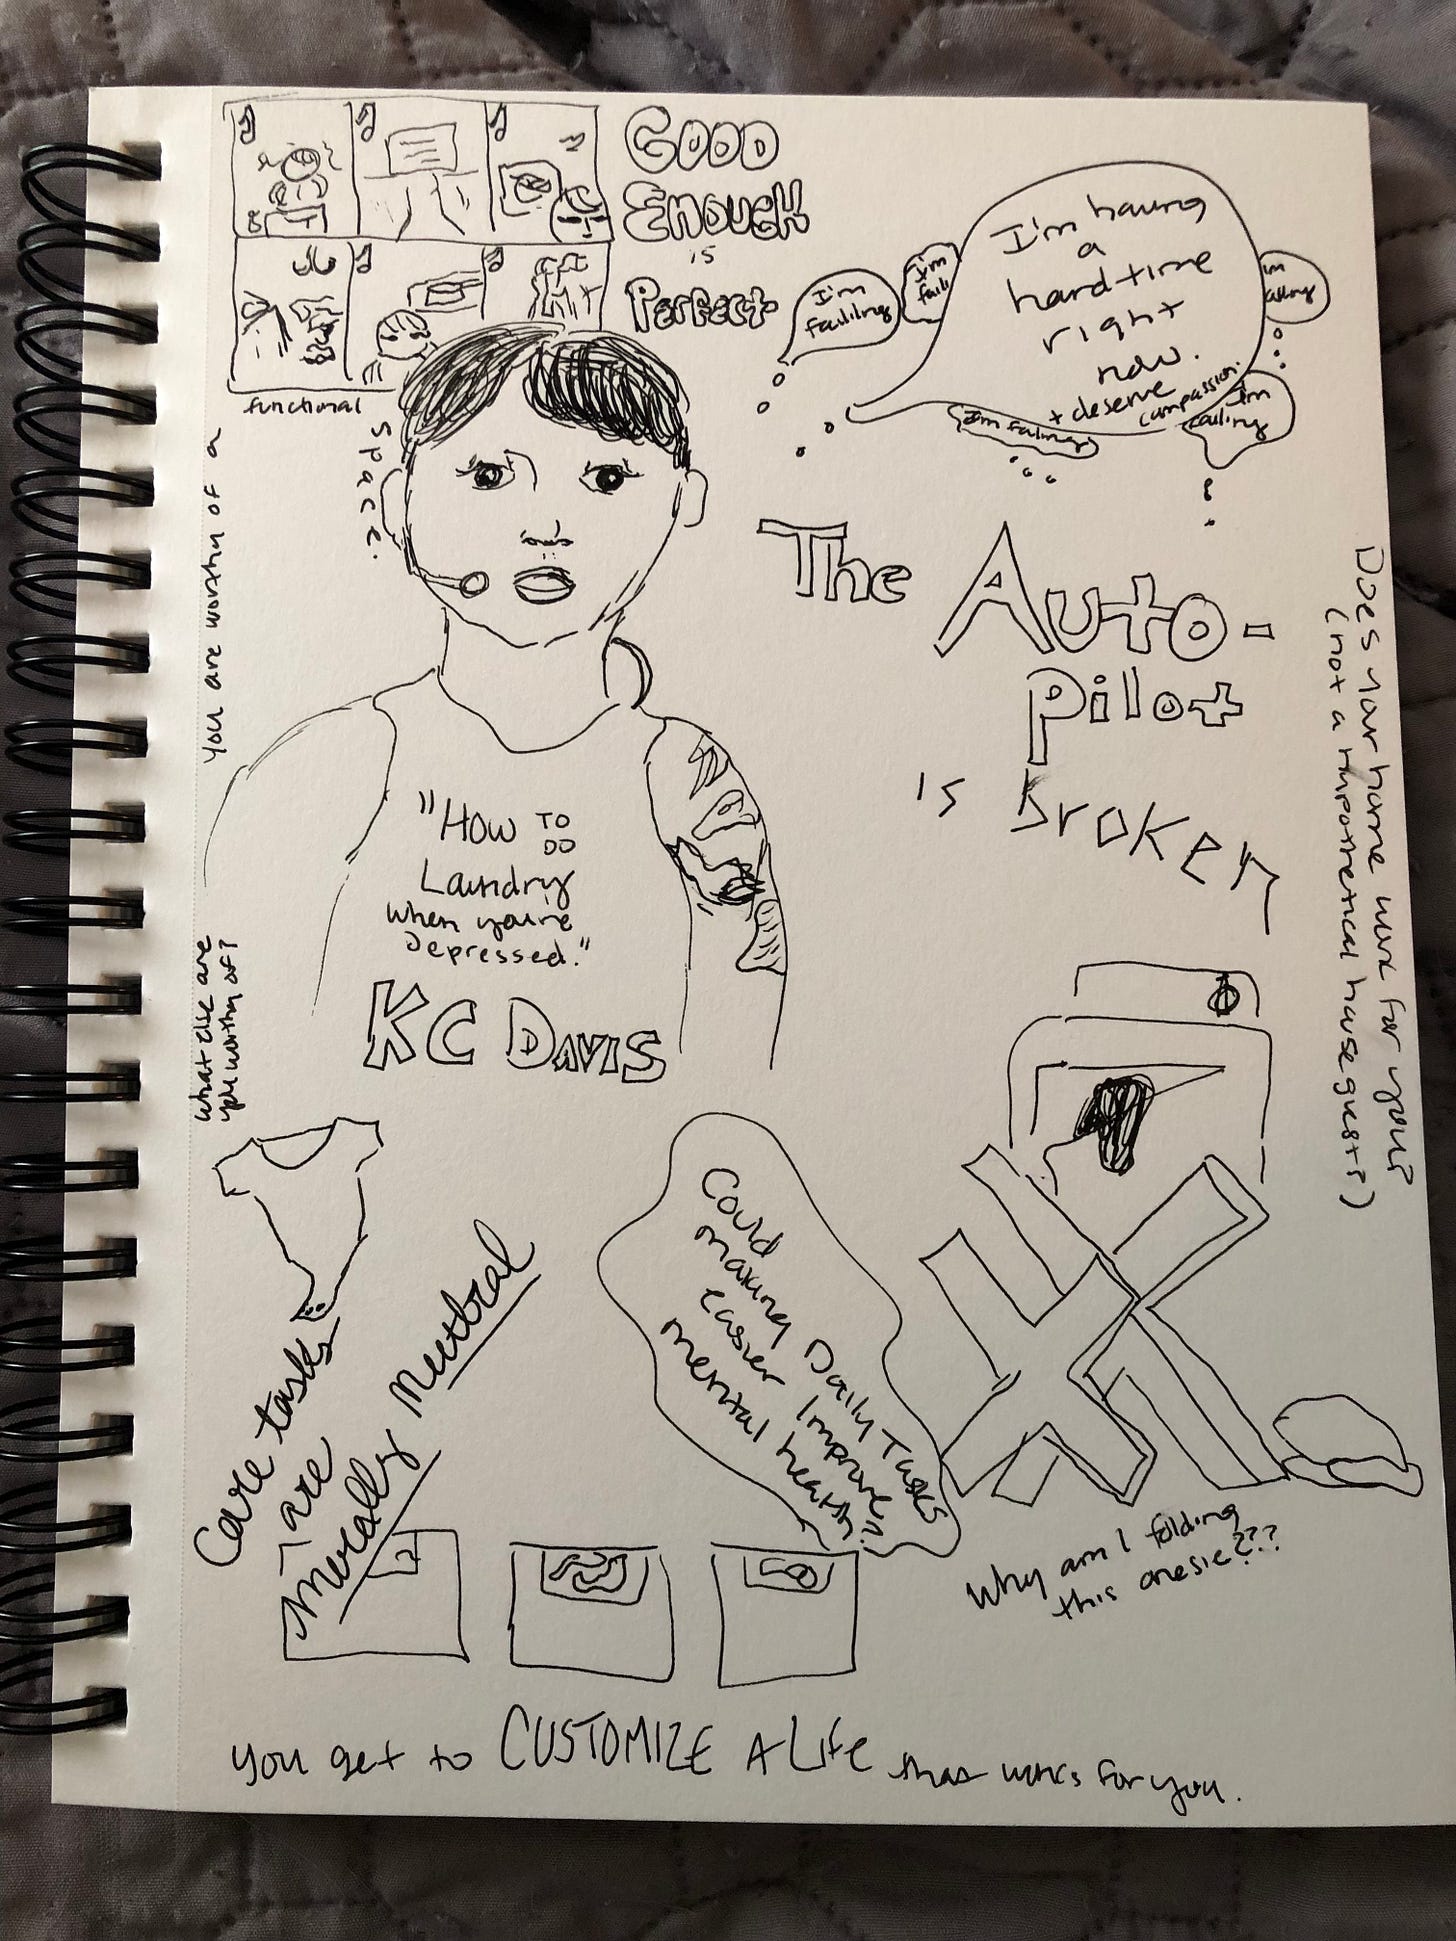 GOOD
ENOUGH
is
Perfect
I'm having
a
hard time
right
now.
+ deserve
compassion.
I'm
faililng
I'm
faili
I'm
ailing
I'm failing
I'm
failing
You are worthy of a
functional
space.
The Auto-
Pilot
is broken
Does your home work for you?
(not a hypothetical houseguest?)
"How TO
DO
Laundry
when you're
Depressed."
KC DAVIS
What else are
you worthy of?
Care tasks
are
morally Neutral
Could
making Daily Tasks
easier Improve
mental health?
Why am I folding
this onesie???
you get to CUSTOMIZE A Life that works for you.